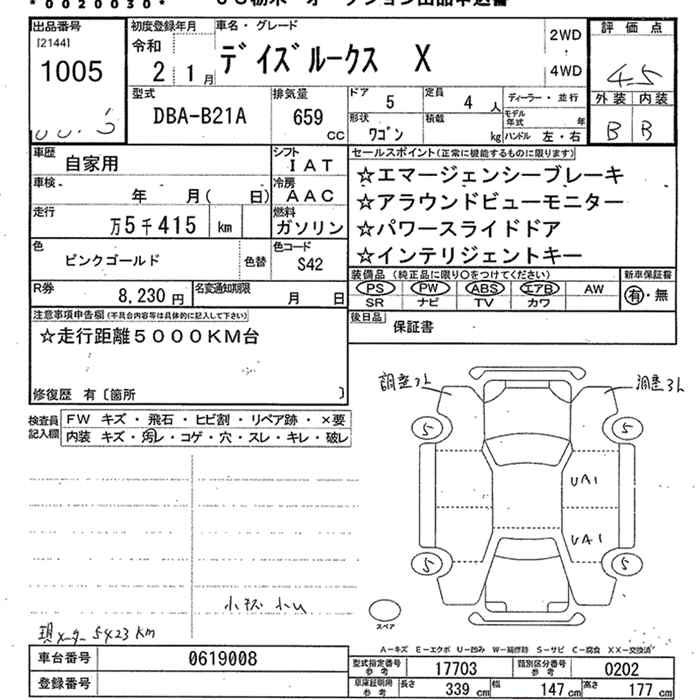 *0020030*
出品番号
[2144]
1005
初度登録年月
令和
2 1月
車名・グレード
デイズルークス X
2WD
4WD
評価点
4.5
外装 内装
B B
型式
DBA-B21A
排気量
659
cc
ドア
5
定員
4 人
形状
ワゴン
積載
kg
ディーラー・並行
モデル年式
年
ハンドル 左・右
車歴
自家用
シフト
I AT
冷房
AAC
車検
年 月( 日)
走行
万5千415 km
燃料
ガソリン
色
ピンクゴールド
色替
色コード
S42
R券
8,230円
名変通知期限
月 日
セールスポイント(正常に機能するものに限ります)
☆エマージェンシーブレーキ
☆アラウンドビューモニター
☆パワースライドドア
☆インテリジェントキー
装備品 (純正品に限り○をつけてください)
PS PW ABS エアB AW
SR ナビ TV カワ
新車保証書
有・無
後日品
保証書
注意事項申告欄(不具合内容等は具体的に記入して下さい)
☆走行距離5000KM台
修復歴 有〔箇所 〕
検査員記入欄
FW キズ・飛石・ヒビ割・リペア跡・×要
内装 キズ・汚レ・コゲ・穴・スレ・キレ・破レ
5
5
5
5
UA1
UA1
スペア
小キズ 小U
現メーター 5423 km
A-キズ E-エクボ U-凹み W-補修跡 S-サビ C-腐食 XX-交換済
車台番号
0619008
登録番号
型式指定番号
参考
17703
類別区分番号
参考
0202
車庫証明用
参考
長さ
339 cm
幅
147 cm
高さ
177 cm